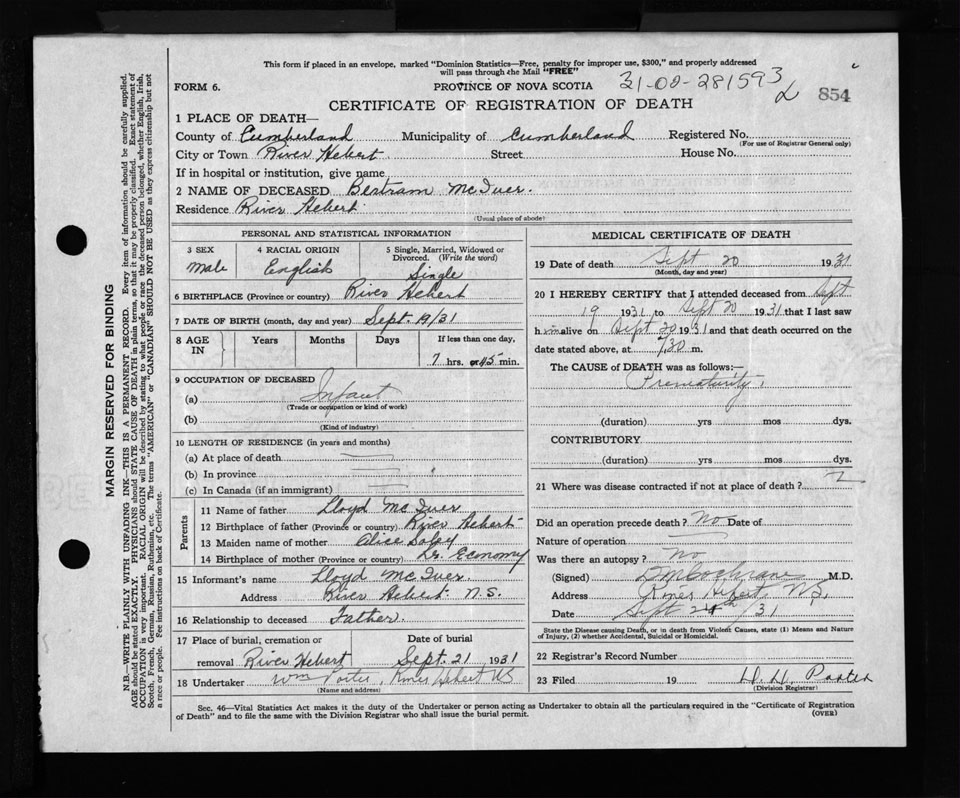 This form if placed in an envelope, marked "Dominion Statistics—Free, penalty for improper use, $300," and properly addressed
will pass through the Mail "FREE"
31-00-281593
FORM 6.
PROVINCE OF NOVA SCOTIA
854
CERTIFICATE OF REGISTRATION OF DEATH
1 PLACE OF DEATH—
County of Cumberland Municipality of Cumberland Registered No.
(For use of Registrar General only)
City or Town River Hebert Street House No.
If in hospital or institution, give name
2 NAME OF DECEASED Bertram McIver.
Residence River Hebert
(Usual place of abode)
PERSONAL AND STATISTICAL INFORMATION
3 SEX 4 RACIAL ORIGIN 5 Single, Married, Widowed or
Divorced. (Write the word)
Male English Single
6 BIRTHPLACE (Province or country) River Hebert
7 DATE OF BIRTH (month, day and year) Sept. 19/31
8 AGE IN Years Months Days If less than one day,
7 hrs. or 45 min.
9 OCCUPATION OF DECEASED
(a) Infant
(Trade or occupation or kind of work)
(b)
(Kind of industry)
10 LENGTH OF RESIDENCE (in years and months)
(a) At place of death
(b) In province
(c) In Canada (if an immigrant)
Parents
11 Name of father Lloyd McIver
12 Birthplace of father (Province or country) River Hebert
13 Maiden name of mother Alice
14 Birthplace of mother (Province or country) Lr. Economy
15 Informant's name Lloyd McIver.
Address River Hebert N.S.
16 Relationship to deceased Father.
17 Place of burial, cremation or Date of burial
removal River Hebert Sept. 21 1931
18 Undertaker Wm Porter, River Hebert NS
(Name and address)
MEDICAL CERTIFICATE OF DEATH
19 Date of death Sept 20 1931
(Month, day and year)
20 I HEREBY CERTIFY that I attended deceased from Sept
19 1931 to Sept 20 1931 that I last saw
him alive on Sept 20 1931 and that death occurred on the
date stated above, at 30 m.
The CAUSE of DEATH was as follows:—
Prematurity.
(duration) yrs mos dys.
CONTRIBUTORY
(duration) yrs mos dys.
21 Where was disease contracted if not at place of death?
Did an operation precede death? No Date of
Nature of operation
Was there an autopsy? No
(Signed) Cochrane M.D.
Address River Hebert N.S.
Date Sept 24th /31
State the Disease causing Death, or in death from Violent Causes, state (1) Means and Nature
of Injury, (2) whether Accidental, Suicidal or Homicidal.
22 Registrar's Record Number
23 Filed 19
(Division Registrar)
Sec. 46—Vital Statistics Act makes it the duty of the Undertaker or person acting as Undertaker to obtain all the particulars required in the "Certificate of Registration
of Death" and to file the same with the Division Registrar who shall issue the burial permit. (OVER)
MARGIN RESERVED FOR BINDING
N.B.—WRITE PLAINLY WITH UNFADING INK—THIS IS A PERMANENT RECORD. Every item of information should be carefully supplied.
AGE should be stated EXACTLY. PHYSICIANS should STATE CAUSE OF DEATH in plain terms, so that it may be properly classified. Exact statement of
OCCUPATION is very important. RACIAL ORIGIN will be described by stating to what people or race the deceased person belonged, whether English, Irish,
Scotch, French, German, Russian, Ruthenian, etc. The terms "AMERICAN" or "CANADIAN" SHOULD NOT BE USED as they express citizenship but not
a race or people. Fee instructions on back of Certificate.